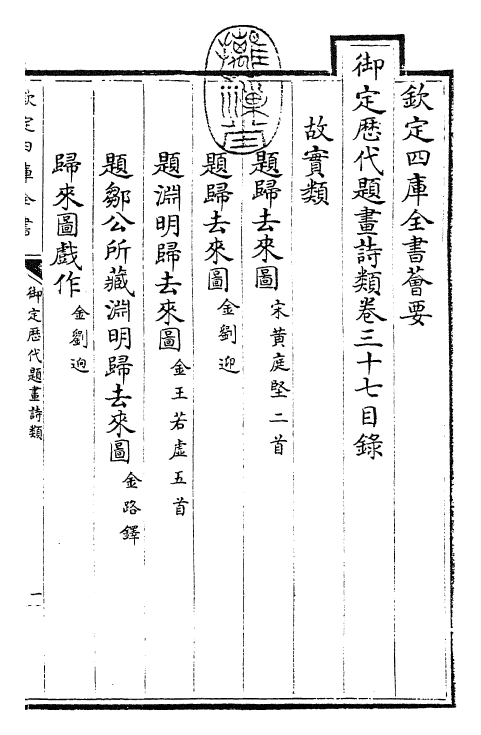 欽定四庫全書薈要
御定歷代題畫詩類卷三十七目錄
故實類
題歸去來圖 宋黃庭堅二首
題歸去來圖 金劉迎
題淵明歸去來圖 金王若虛五首
題鄒公所藏淵明歸去來圖 金路鐸
歸來圖戲作 金劉迎
欽定四庫全書
御定歷代題畫詩類
一